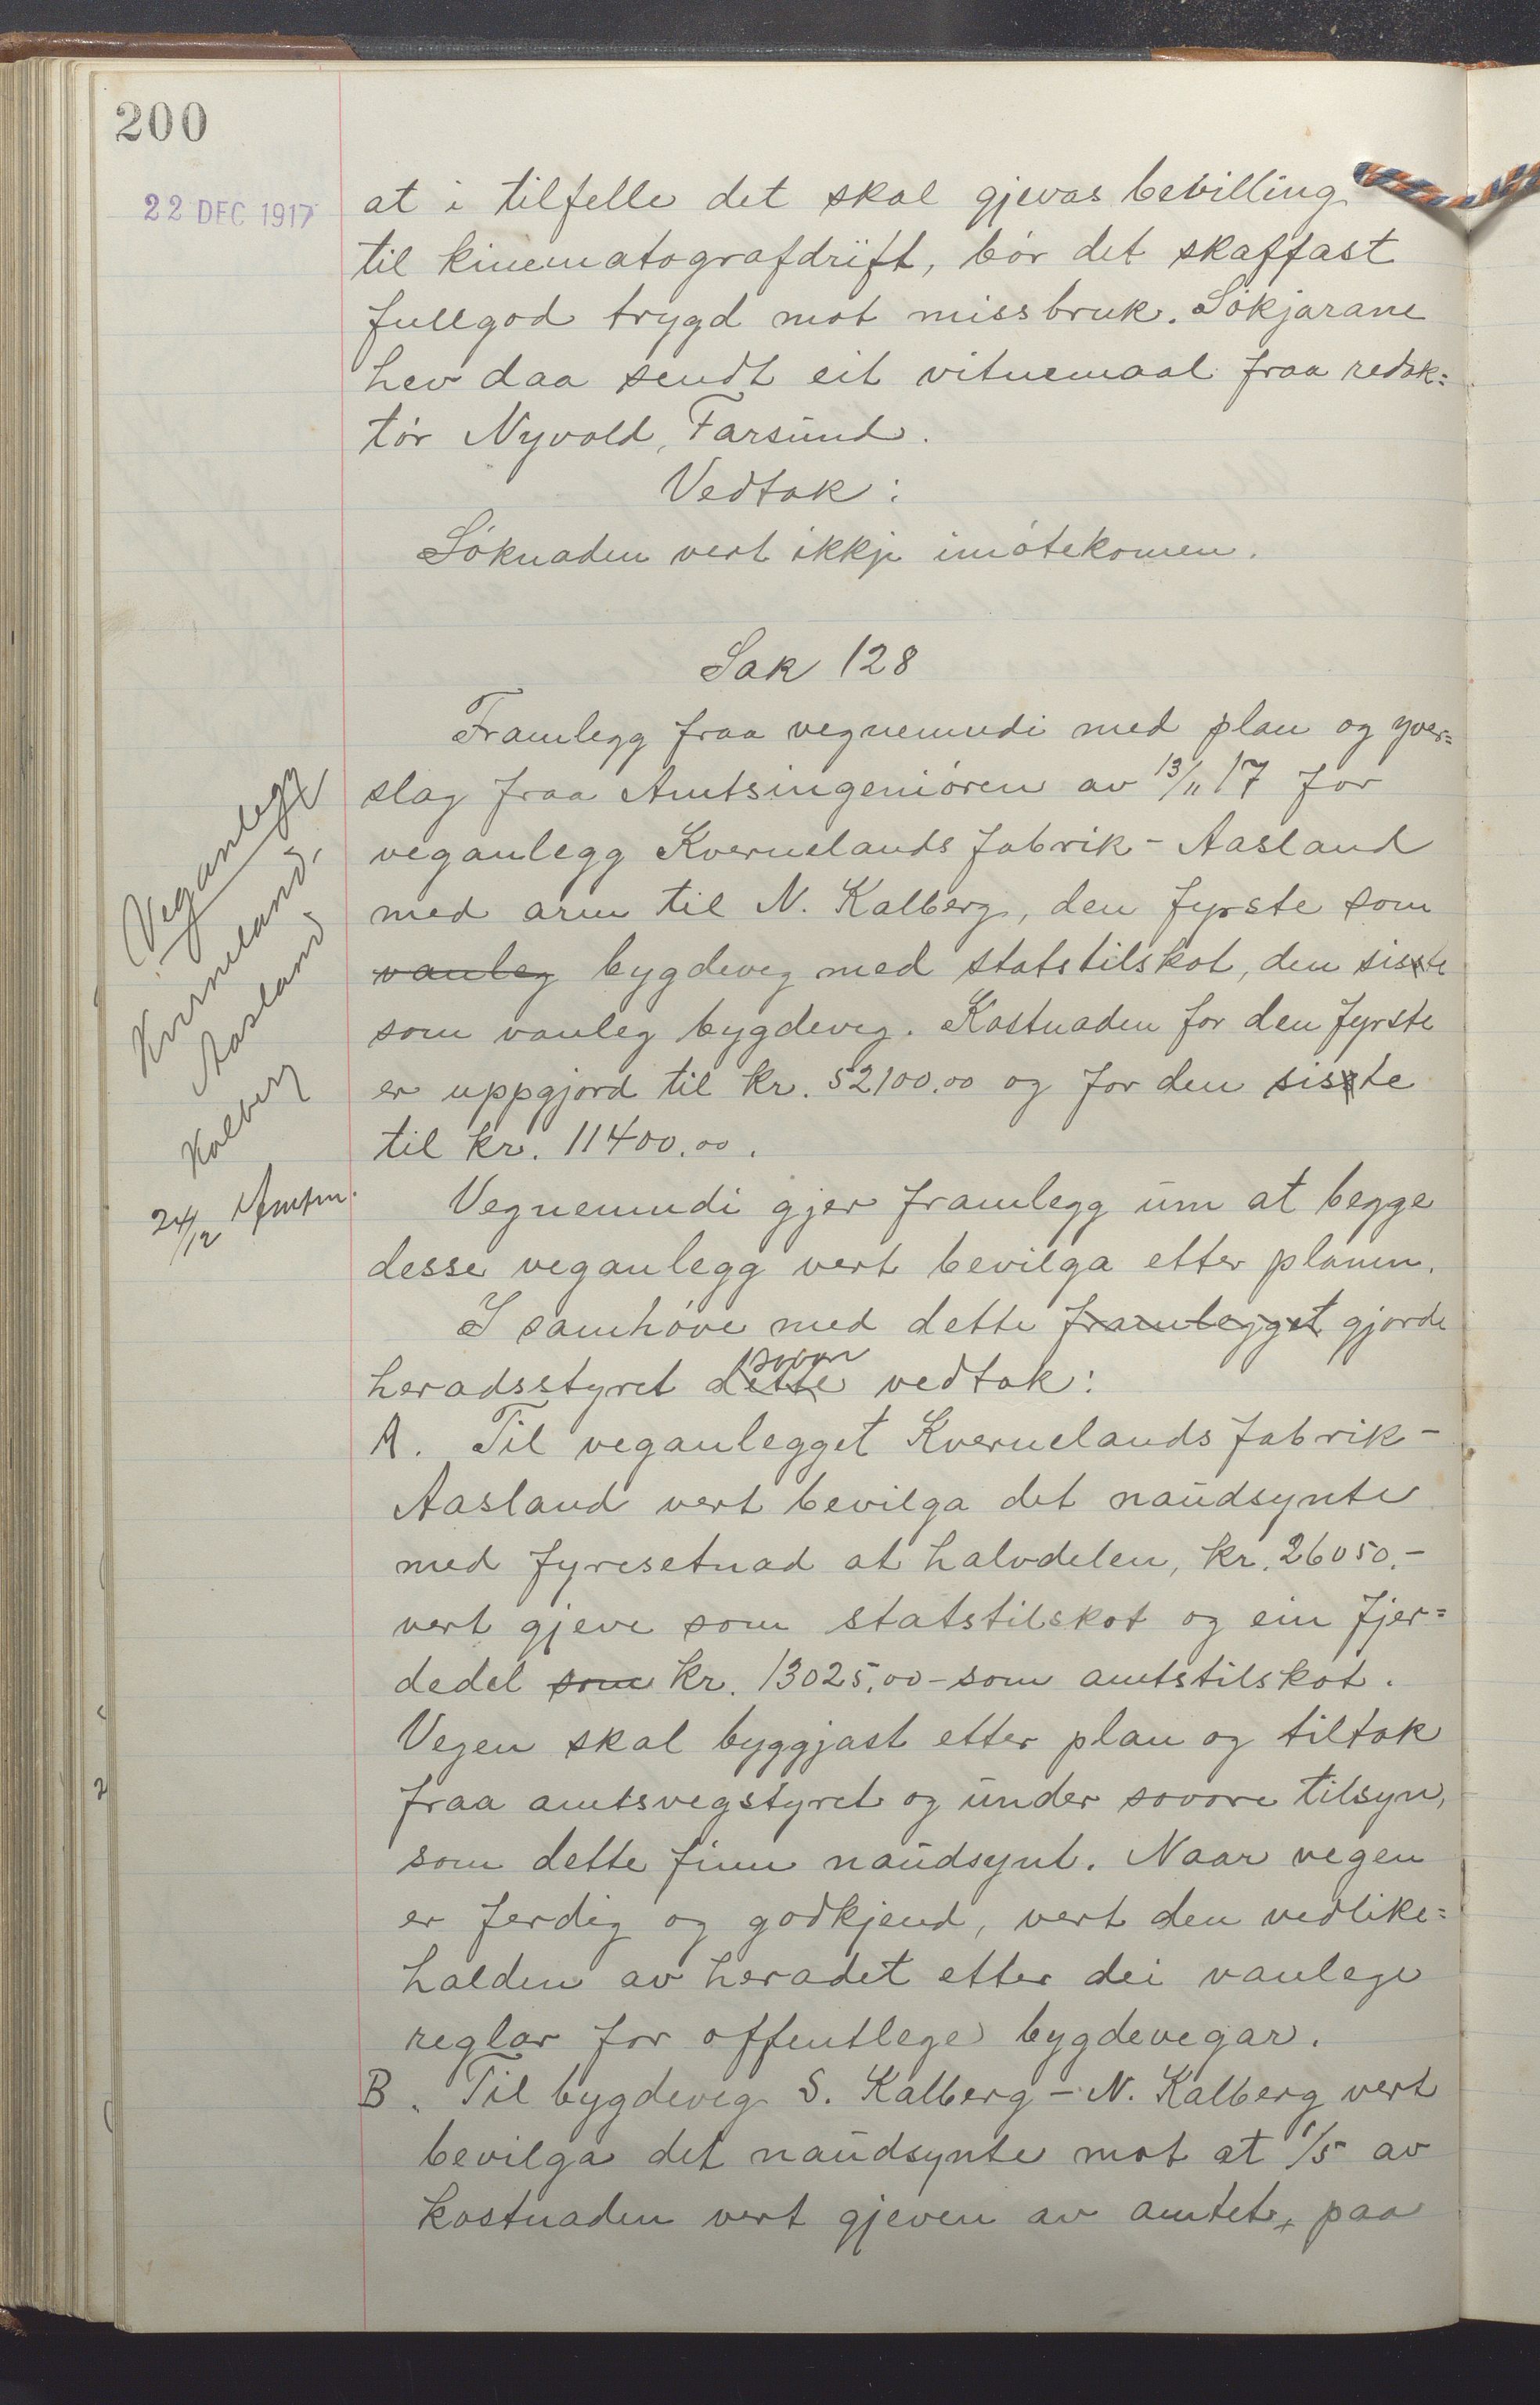 200
22 DEC 1917
at i tilfelle det skal gjevas bevilling
til kinematografdrift, bör det skaffast
fullgod trygd mot missbruk. Sökjarane
hev daa sendt eit vitnemaal fraa redak=
tör Nyvold, Farsund.
Vedtak:
Söknaden vert ikkje imötekomen.
Sak 128
Framlegg fraa vegnemndi med plan og yver=
slag fraa Amtsingeniören av 13/11 17 for
veganlegg Kvernelands fabrik - Aasland
med arm til N. Kalberg, den fyrste som
vanleg bygdeveg med statstilskot, den siste
som vanleg bygdeveg. Kostnaden for den fyrste
er uppgjord til kr. 52100.00 og for den siste
til kr. 11400.00.
Veganlegg
Kverneland,
Aasland
Kalberg
24/12
Vegnemndi gjer framlegg um at begge
desse veganlegg vert bevilga etter planen.
I samhöve med dette framlegget gjorde
heradsstyret dette sovore vedtak:
A. Til veganlegget Kvernelands fabrik -
Aasland vert bevilga det naudsynte
med fyresetnad at halvdelen, kr. 26050.-
vert gjeve som statstilskot og ein fjer=
dedel som kr. 13025.00 - som amtstilskot.
Vegen skal byggjast etter plan og tiltak
fraa amtsvegstyret og under sovore tilsyn,
som dette finn naudsynt. Naar vegen
er ferdig og godkjend, vert den vedlike=
halden av heradet etter dei vanlege
reglar for offentlege bygdevegar.
B. Til bygdeveg S. Kalberg - N. Kalberg vert
bevilga det naudsynte mot at 1/5 av
kostnaden vert gjeven av amtet, paa